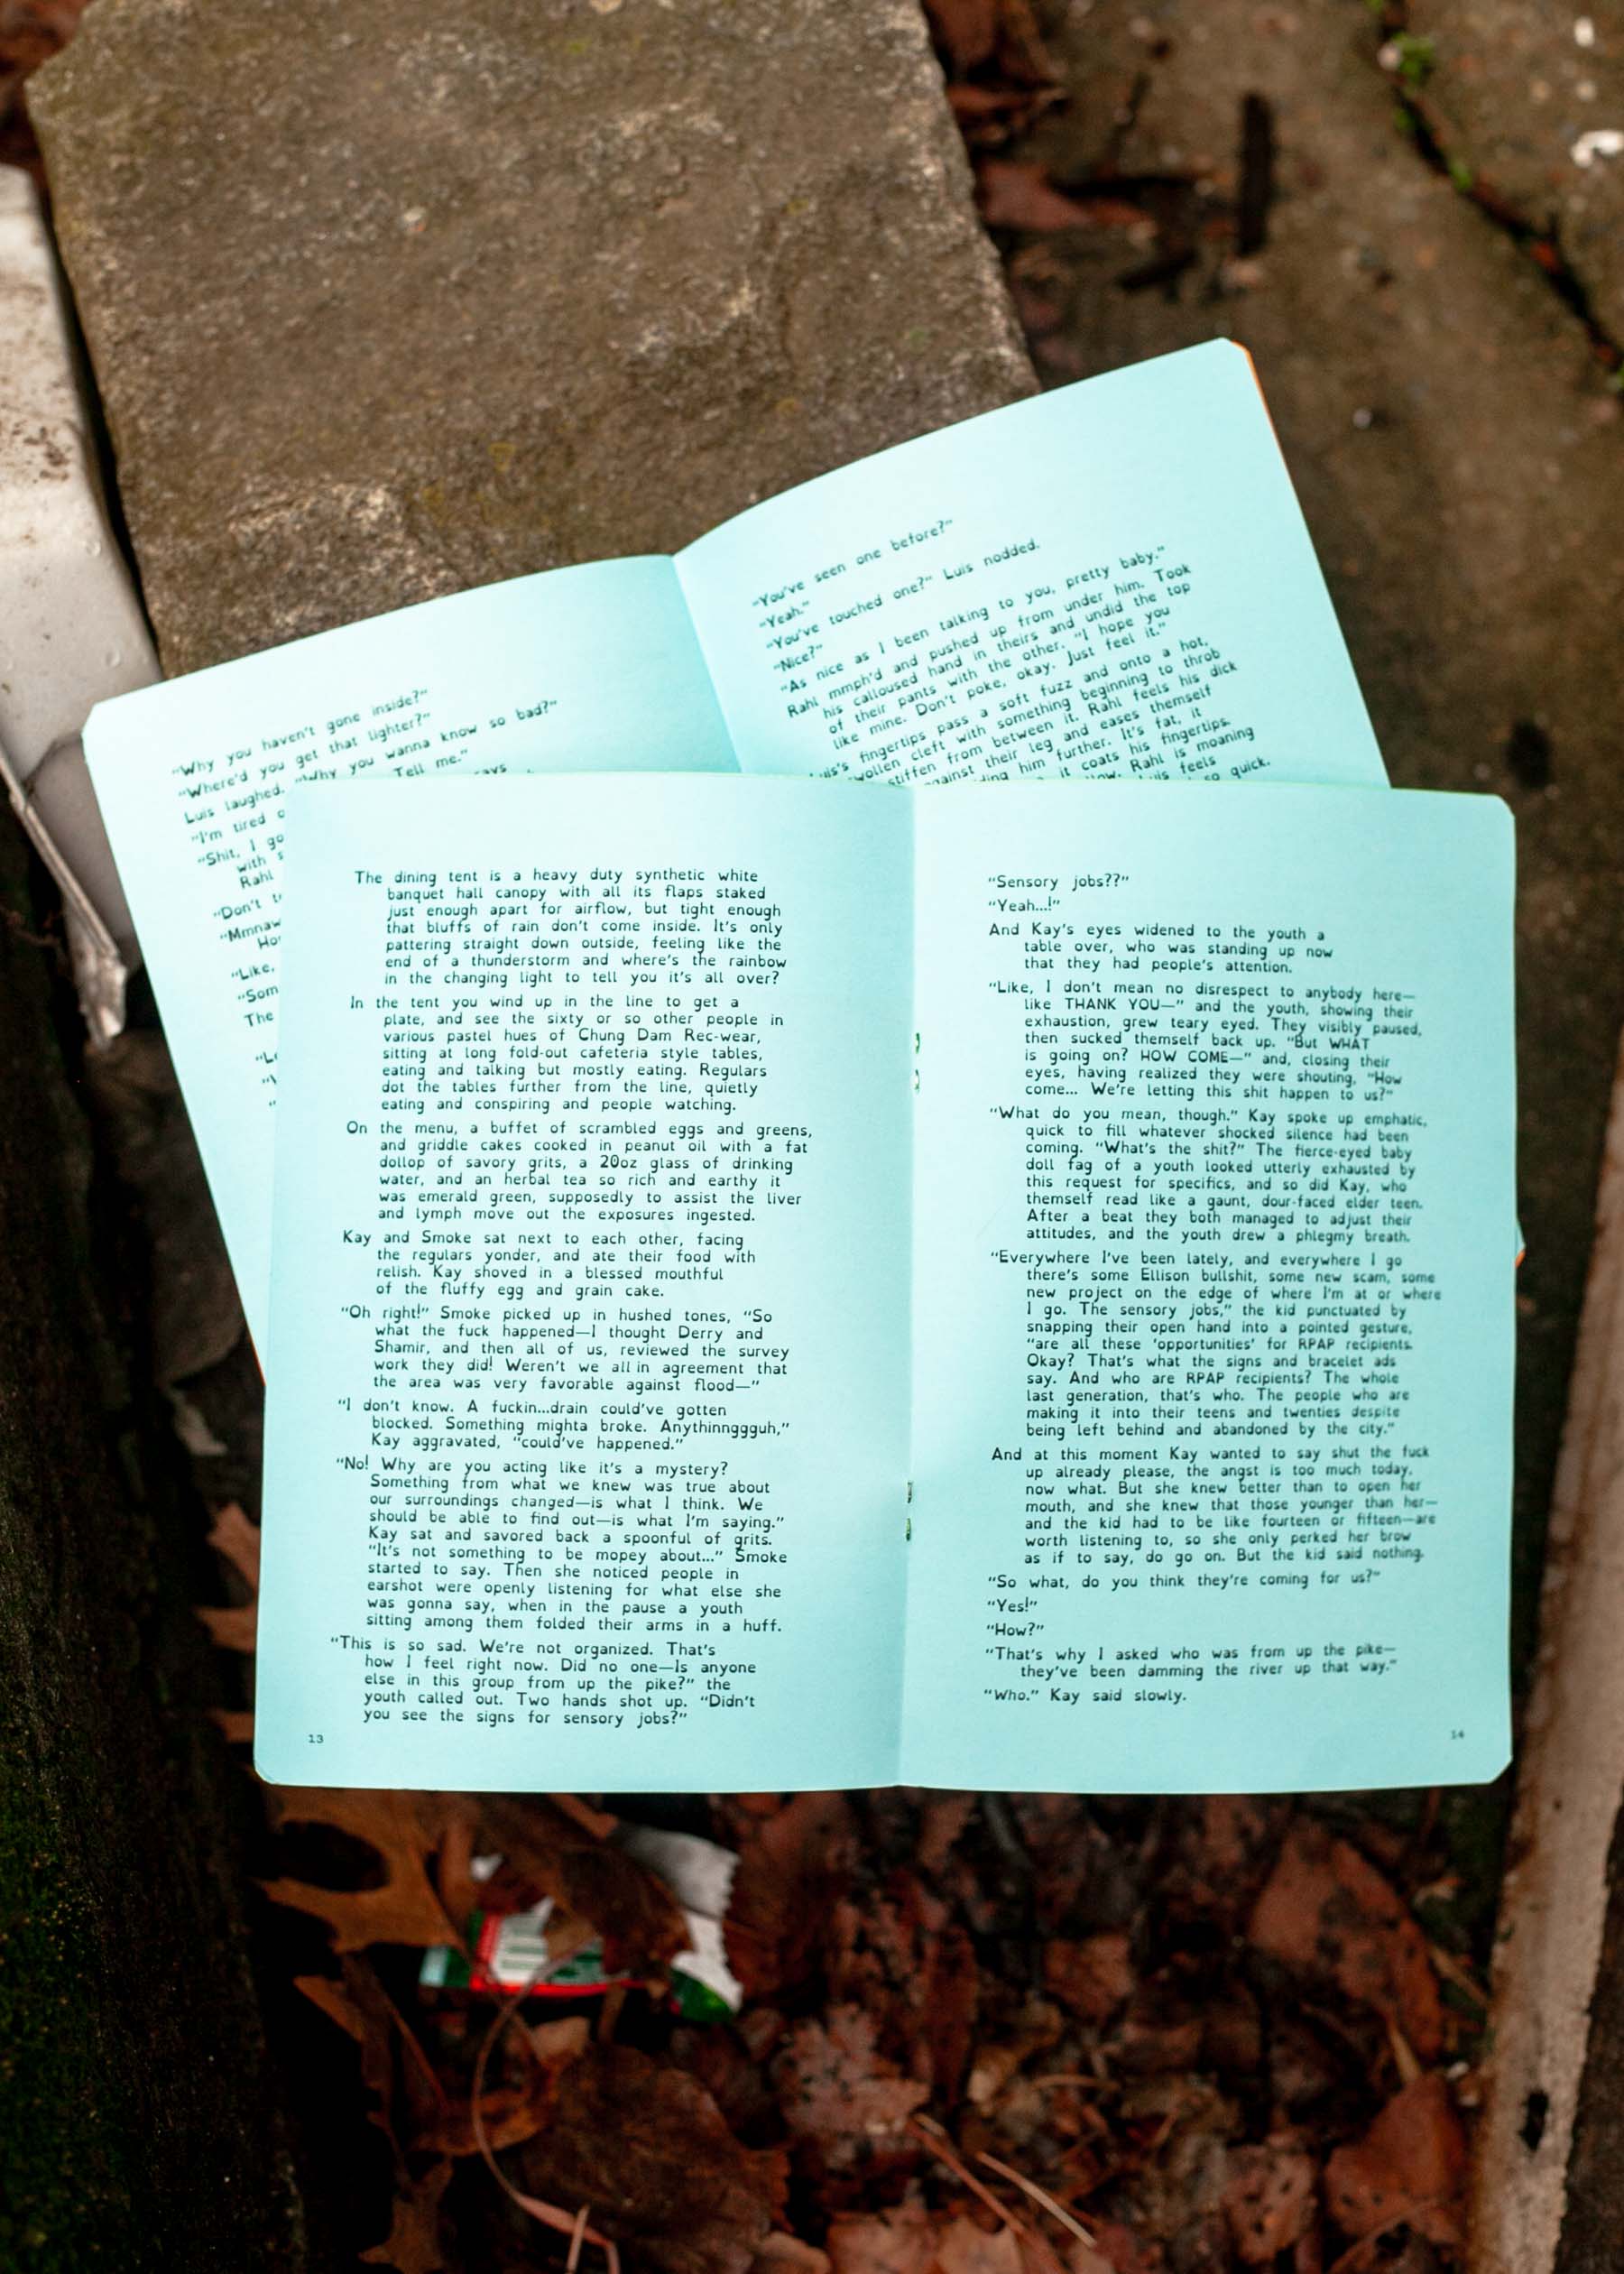 "Why you haven't gone inside?"
"Where'd you get that lighter?"
Luis laughed. "Why you wanna know so bad?"
"I'm tired Tell me."
"Shit, I
with
Rahl
"Don't
"Mmnaw
"Like,
The
"You've seen one before?"
"Yeah."
"You've touched one?" Luis nodded.
"Nice?"
"As nice as I been talking to you, pretty baby."
Rahl mmph'd and pushed up from under him. Took
his calloused hand in theirs and undid the top
of their pants with the other. "I hope you
like mine. Don't poke, okay. Just feel it."
fingertips pass a soft fuzz and onto a hot,
cleft with something beginning to throb
stiffen from between it. Rahl feels his dick
against their leg and eases themself
him further. It's fat, it
it coats his fingertips.
Rahl is moaning
feels
so quick.
The dining tent is a heavy duty synthetic white
banquet hall canopy with all its flaps staked
just enough apart for airflow, but tight enough
that bluffs of rain don't come inside. It's only
pattering straight down outside, feeling like the
end of a thunderstorm and where's the rainbow
in the changing light to tell you it's all over?
In the tent you wind up in the line to get a
plate, and see the sixty or so other people in
various pastel hues of Chung Dam Rec-wear,
sitting at long fold-out cafeteria style tables,
eating and talking but mostly eating. Regulars
dot the tables further from the line, quietly
eating and conspiring and people watching.
On the menu, a buffet of scrambled eggs and greens,
and griddle cakes cooked in peanut oil with a fat
dollop of savory grits, a 20oz glass of drinking
water, and an herbal tea so rich and earthy it
was emerald green, supposedly to assist the liver
and lymph move out the exposures ingested.
Kay and Smoke sat next to each other, facing
the regulars yonder, and ate their food with
relish. Kay shoved in a blessed mouthful
of the fluffy egg and grain cake.
"Oh right!" Smoke picked up in hushed tones, "So
what the fuck happened—I thought Derry and
Shamir, and then all of us, reviewed the survey
work they did! Weren't we all in agreement that
the area was very favorable against flood—"
"I don't know. A fuckin...drain could've gotten
blocked. Something mighta broke. Anythinnggguh,"
Kay aggravated, "could've happened."
"No! Why are you acting like it's a mystery?
Something from what we knew was true about
our surroundings changed—is what I think. We
should be able to find out—is what I'm saying."
Kay sat and savored back a spoonful of grits.
"It's not something to be mopey about..." Smoke
started to say. Then she noticed people in
earshot were openly listening for what else she
was gonna say, when in the pause a youth
sitting among them folded their arms in a huff.
"This is so sad. We're not organized. That's
how I feel right now. Did no one—Is anyone
else in this group from up the pike?" the
youth called out. Two hands shot up. "Didn't
you see the signs for sensory jobs?"
13
"Sensory jobs??"
"Yeah...!"
And Kay's eyes widened to the youth a
table over, who was standing up now
that they had people's attention.
"Like, I don't mean no disrespect to anybody here—
like THANK YOU—" and the youth, showing their
exhaustion, grew teary eyed. They visibly paused,
then sucked themself back up. "But WHAT
is going on? HOW COME—" and, closing their
eyes, having realized they were shouting, "How
come... We're letting this shit happen to us?"
"What do you mean, though." Kay spoke up emphatic,
quick to fill whatever shocked silence had been
coming. "What's the shit?" The fierce-eyed baby
doll fag of a youth looked utterly exhausted by
this request for specifics, and so did Kay, who
themself read like a gaunt, dour-faced elder teen.
After a beat they both managed to adjust their
attitudes, and the youth drew a phlegmy breath.
"Everywhere I've been lately, and everywhere I go
there's some Ellison bullshit, some new scam, some
new project on the edge of where I'm at or where
I go. The sensory jobs," the kid punctuated by
snapping their open hand into a pointed gesture,
"are all these 'opportunities' for RPAP recipients.
Okay? That's what the signs and bracelet ads
say. And who are RPAP recipients? The whole
last generation, that's who. The people who are
making it into their teens and twenties despite
being left behind and abandoned by the city."
And at this moment Kay wanted to say shut the fuck
up already please, the angst is too much today,
now what. But she knew better than to open her
mouth, and she knew that those younger than her—
and the kid had to be like fourteen or fifteen—are
worth listening to, so she only perked her brow
as if to say, do go on. But the kid said nothing.
"So what, do you think they're coming for us?"
"Yes!"
"How?"
"That's why I asked who was from up the pike—
they've been damming the river up that way."
"Who." Kay said slowly.
14